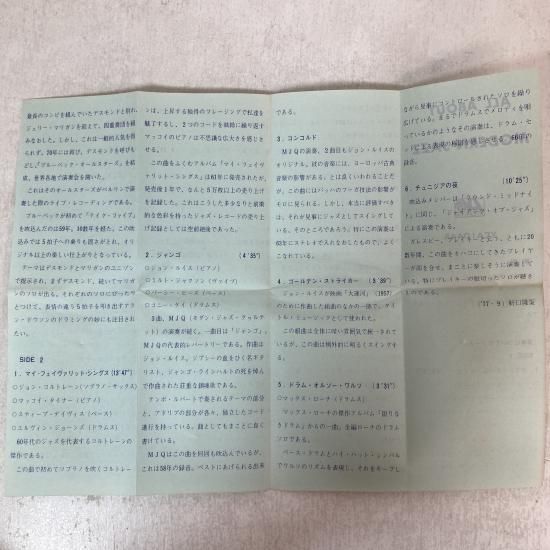 最長のコンビを組んでいたデスモンドと別れ、
ジェリー・マリガンを迎えて、四重奏団を組
みなおした。しかし、これは一般的人気を得
られず、70年には再び、デスモンドを呼びも
どし、「ブルーベック・オールスターズ」を結
成、世界各地で演奏会を開いた。
これはそのオールスターズがベルリンで演
奏した際のライブ・レコーディングである。
ブルーベックが初めて「テイク・ファイブ」
を吹込んだのは59年。10数年を経た、この吹
込みでは5拍子への乗りも固さがとれ、オリ
ジナル以上の楽しい仕上がりとなっている。
テーマはデスモンドとマリガンのユニゾン
で提示され、まずデスモンド、続いてマリガ
ンのソロが出る。それぞれのソロにぴったり
とつけて、表情の違う5拍子を叩き出すアラ
ン・ドウソンのドラミングの妙にも注目され
たい。
SIDE 2
1．マイ・フェイヴァリット・シングス (13′47″)
○ジョン・コルトレーン(ソプラノ・サックス)
○マッコイ・タイナー (ピアノ)
○スティーブ・デイヴィス (ベース)
○エルヴィン・ジョーンズ (ドラムス)
60年代のジャズを代表するコルトレーンの
傑作である。
この曲で初めてソプラノを吹くコルトレー
ンは、上昇する独特のフレージングで私達を
魅了するし、2つのコードを執拗に繰り返す
マッコイのピアノは不思議な広大さを感じさ
せる。
この曲をふくむアルバム「マイ・フェイヴ
ァリット・シングス」は61年に発売されたが、
発売後1年で、なんと5万枚以上の売り上げ
を記録した。これはこうした多少なりと前衛
的な色彩を持ったジャズ・レコードの売り上
げ記録としては空前絶後であった。
2．ジャンゴ (4′35″)
○ジョン・ルイス (ピアノ)
○ミルト・ジャクソン (ヴァイブ)
○パーシー・ヒース (ベース)
○コニー・ケイ (ドラムス)
3曲、MJQ (モダン・ジャズ・クヮルテ
ット) の演奏が続く。一曲目は「ジャンゴ」。
MJQの代表的レパートリーである。作曲は
ジョン・ルイス。ジプシーの血をひく名ギタ
リスト、ジャンゴ・ラインハルトの死を悼ん
で作曲された荘重な鎮魂歌である。
テンポ・ルバートで奏されるテーマの部分
と、アドリブの部分が各々、独立したコード
進行を持っている。曲としてもまことに良く
書けている。
MJQはこの曲を何回も吹込んでいるが、
これは58年の録音。ベストにあげられる出来
である。
3．コンコルド
MJQの演奏、2曲目もジョン・ルイスの
オリジナル。彼の音楽には、ヨーロッパ古典
音楽の影響がある、とは良くいわれることだ
が、この曲にはバッハのフーガ技法の影響が
もろに見られる。しかし、本当に評価すべき
は、それが見事にジャズとしてスイングして
いる、そのところであろう。特にこの演奏は
63年にステレオで入れなおしたもので、よく
こなれている。
4．ゴールデン・ストライカー (3′39″)
ジョン・ルイスが映画「大運河」(1957)
のために作曲した組曲のなかの一曲で、タイ
トル・ミュージックとして使われた。
この組曲は全体に暗い雰囲気で統一されて
いるが、この曲は例外的に明るくスイングす
る。
5．ドラム・オルソー・ワルツ (3′31″)
マックス・ローチ (ドラムス)
マックス・ローチの傑作アルバム「限りな
きドラム」からの一曲。全編ローチのドラム
ソロである。
ベース・ドラムとハイ・ハット・シンバル
でワルツのリズムを表現し、それをキープし
ながら見事にコントロールされたソロを繰り
広げている。まるでドラムスでメロディを唄
っているかのようなその演奏は、ドラム・セ
6．チュニジアの夜 (10′25″)
吹込みメンバーは「ラウンド・ミッドナイ
ト」に同じ。「ジャイアンツ・オブ・ジャズ」
による演奏である。
('77・9) 野口隆